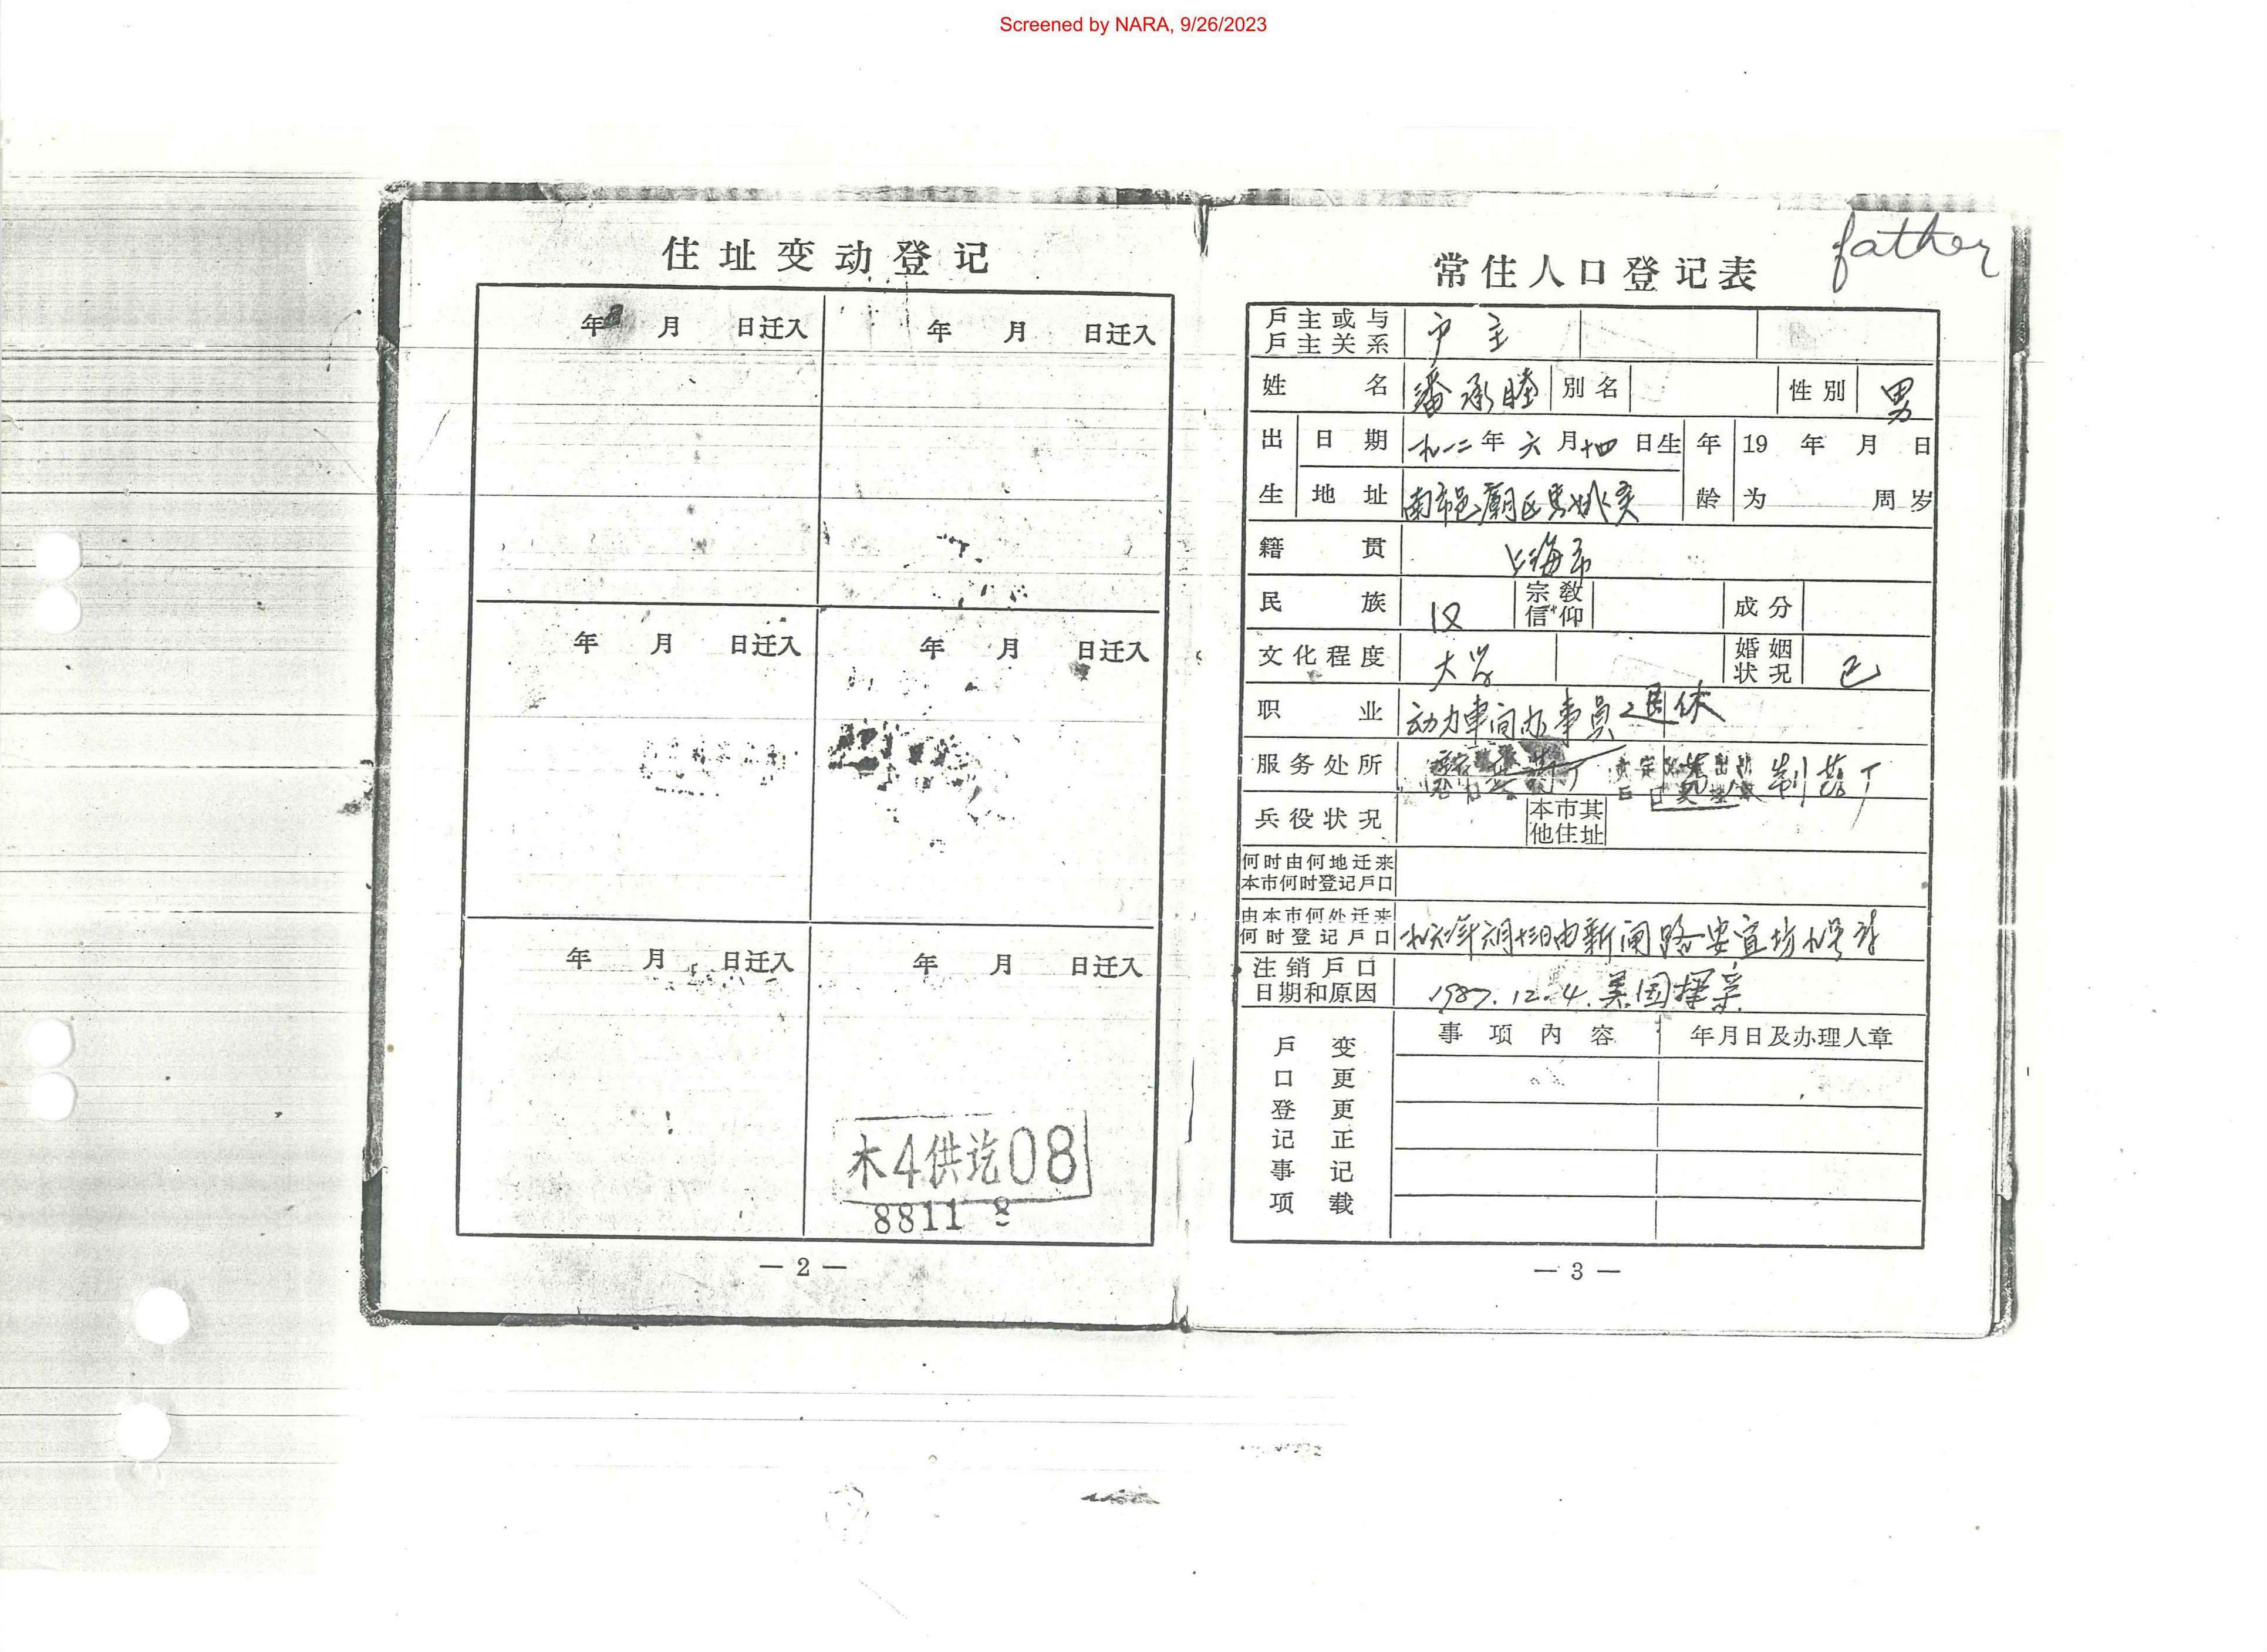 Screened by NARA, 9/26/2023
father
住址变动登记
年 月 日迁入 年 月 日迁入
年 月 日迁入 年 月 日迁入
年 月 日迁入 年 月 日迁入
木4供讫08
8811 8
— 2 —
常住人口登记表
户主或与户主关系 户主
姓名 潘承睦 别名 性别 男
出生 日期 一九一二年六月十四日生 年龄 19 年 月 日
地址 南市邑庙区 为 周岁
籍贯 上海市
民族 汉 宗教信仰 成分
文化程度 大学 婚姻状况 已
职业 动力車间办事员 退休
服务处所 制药厂
兵役状况 本市其他住址
何时由何地迁来本市何时登记户口
由本市何处迁来何时登记户口 由新闸路安宜坊
注销户口日期和原因 1987.12.4.美国探亲
户口登记事项 变更更正记载 事项内容 年月日及办理人章
— 3 —